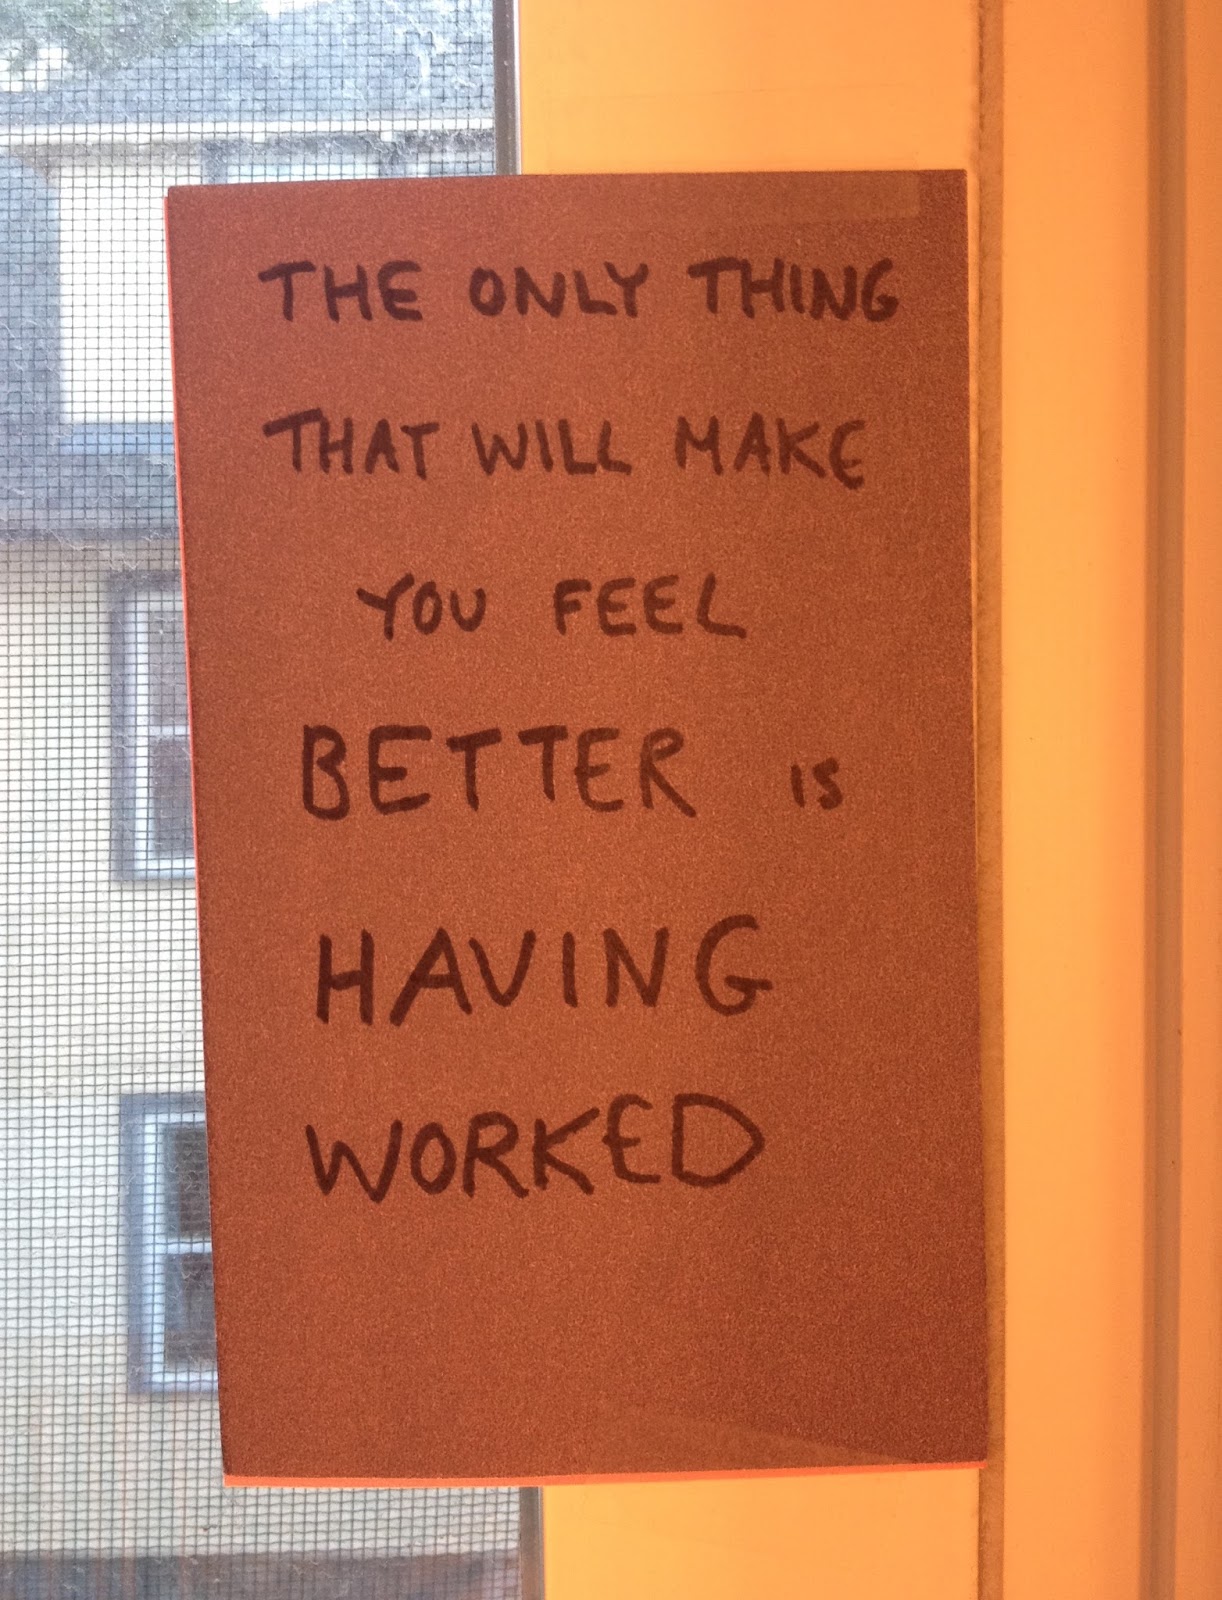 THE ONLY THING
THAT WILL MAKE
YOU FEEL
BETTER IS
HAVING
WORKED